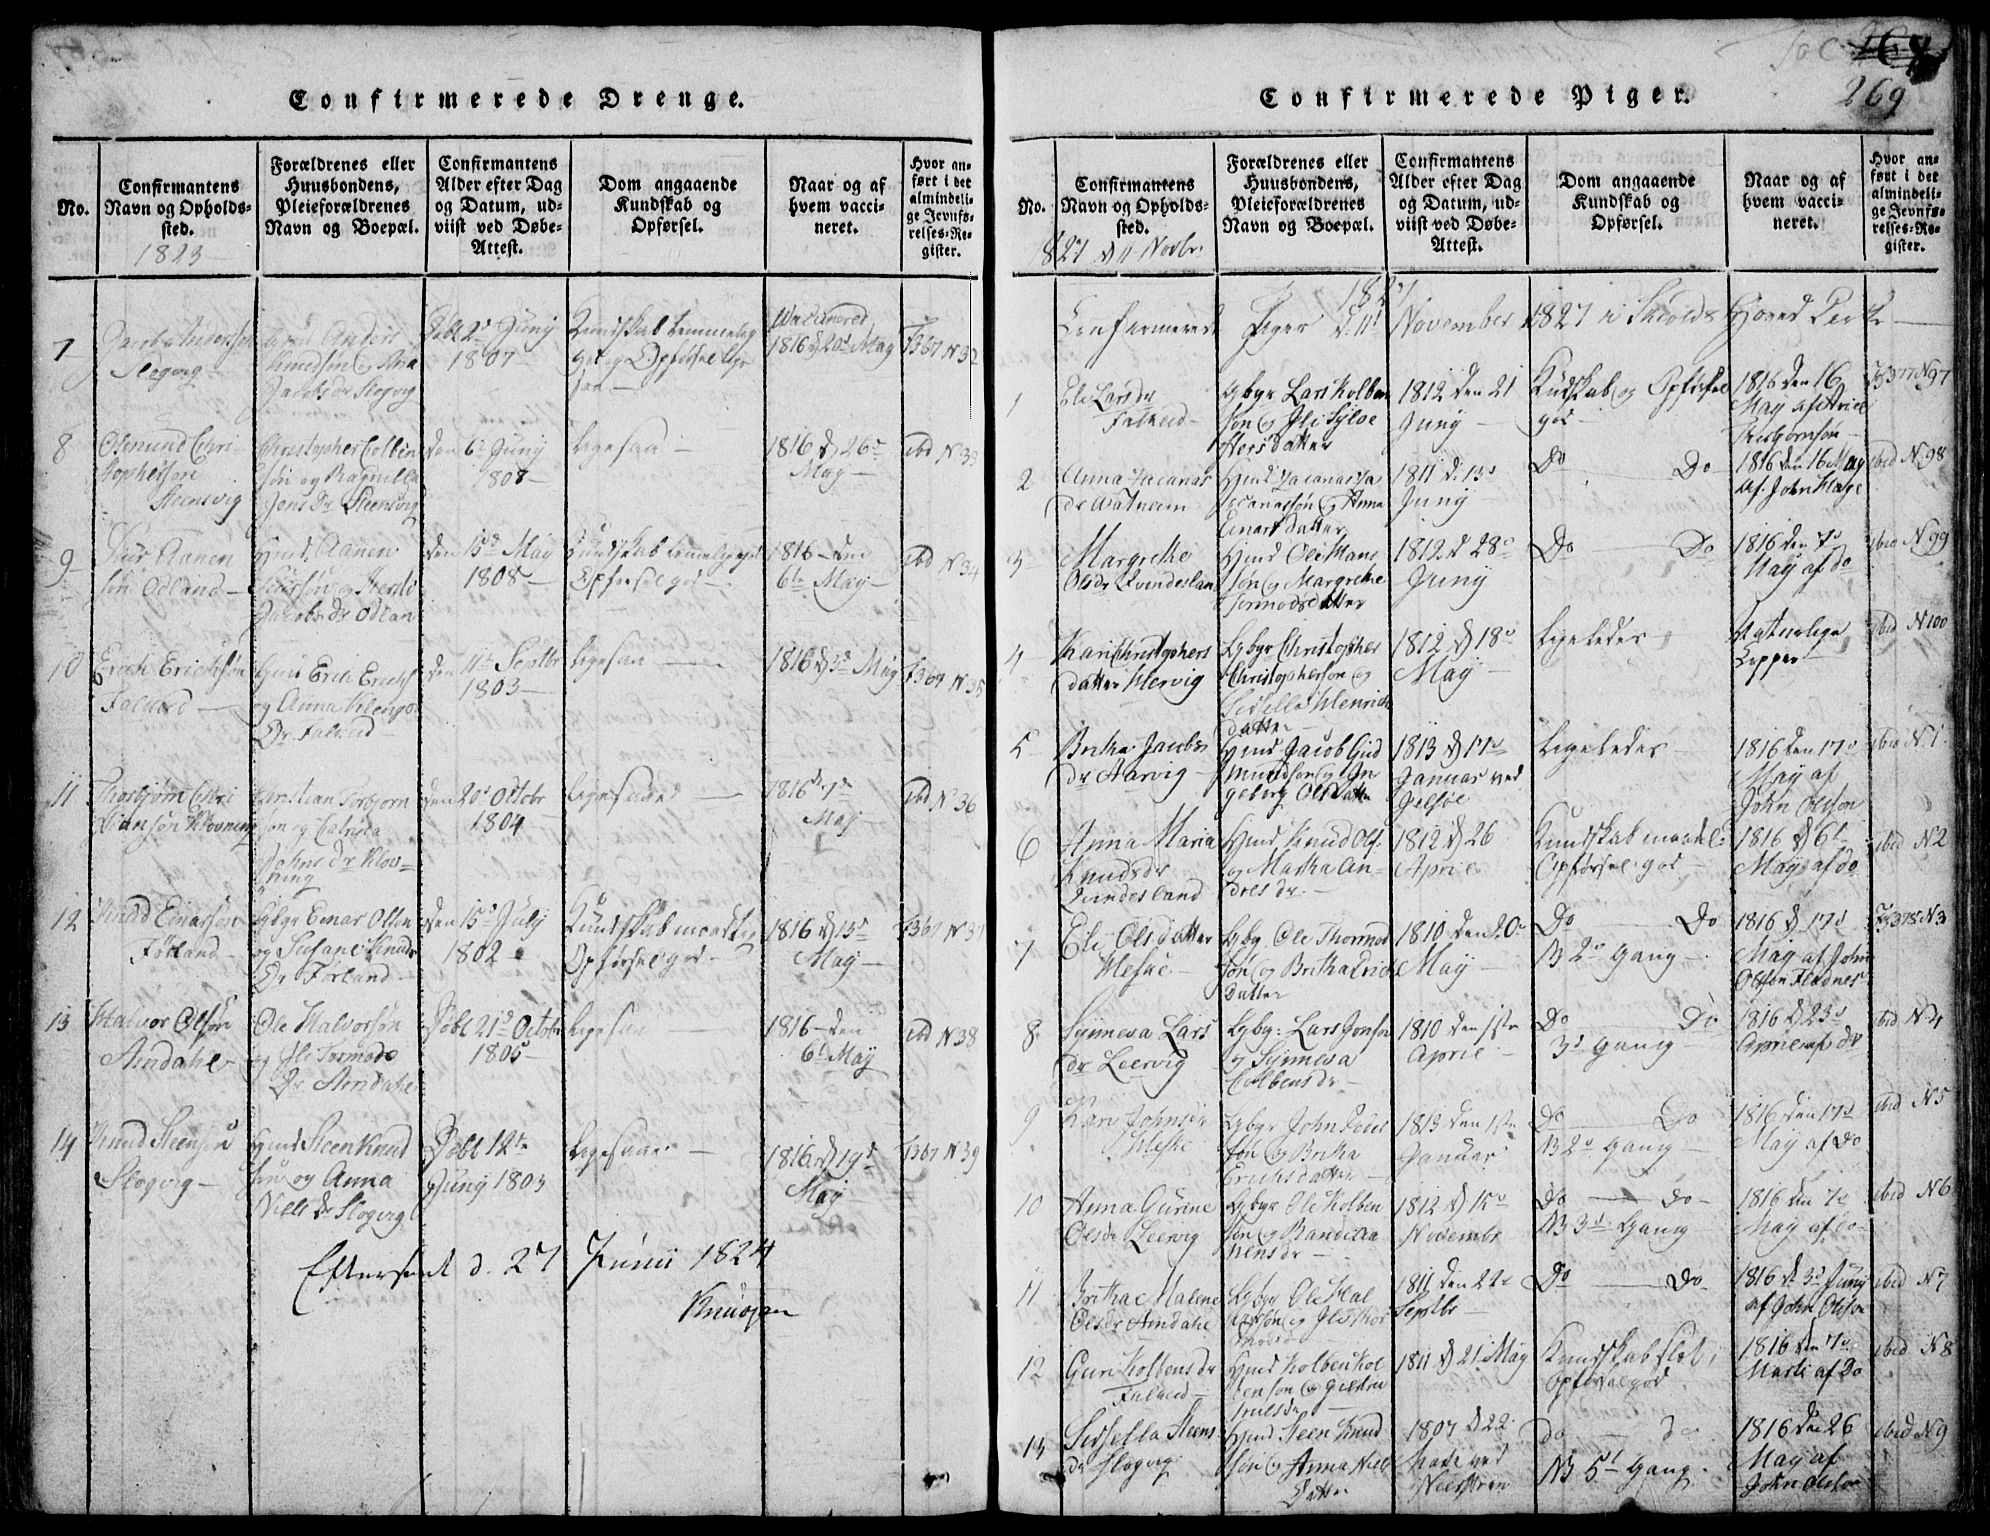 Confirmerede Drenge.
No.
Confirmantens
Navn og Opholds-
sted.
1823
Forældrenes eller
Huusbondens,
Pleieforældrenes
Navn og Boepæl.
Confirmantens
Alder efter Dag
og Datum, ud-
viist ved Døbe-
Attest.
Dom angaaende
Kundskab og
Opførsel.
Naar og af
hvem vacci-
neret.
Hvor an-
ført i det
almindeli-
ge Jevnfø-
relses-Re-
gister.
7
Slogvig
Knudsøn og
Jacobs Dr Slogvig
Døbt 2d Juny
1807
Kundskab temmelig
god og Opførsel lige
saa
Vaccineret
1816 d 20d May
F367 N 32
8
Osmund Chri
stophersøn
Steensvig
Christopher Colbin
søn og Ragnilla
Jens Dr Steensvig
den 6te Juny
1808
ligesaa
1816 d. 26d
May
ibd N 33
9
Aanen
søn Odland
Hmd. Aanen
Jacobs Dr Odlan
den 15d May
1808
Kundskab
Opførsel god
1816 den
6te May
ibd N 34
10
Erich Erichsøn
Falkeid
Hmd Erich Erichs
og Anna
Dr Falkeid
den 11te Septbr
1803
ligesaa
1816 d 3d May
F367 N 35
11
Thorbjørn Chri
stiansøn Klovning
Christian Torbjørn
søn og Catrina
Johns dr Klov-
ning
den 20d Octobr
1804
ligesaa
1816 d 7de
May
ibd N 36
12
Knud Einarsøn
Førland
Lgbgr Einar Olsen
og Susane Knuds
Dr Førland
den 15d July
1802
Kundskab maadelig
Opførsel god
1816 d 13d
May
F367 N 37
13
Halvor Olsøn
Amdahl
Ole Halvorsøn
og Tormods
Dr Amdahl
Døbt 21d Octobr
1805
ligesaa
1816 den
6te May
ibd N 38
14
Knud Steensøn
Slogvig
Hmd Steen Knud
søn og Anna
Niels Dr Slogvig
Døbt 12te
Juny 1803
ligesaa
1816 d 19d
May
F367 N 39
Efterseet d. 27 Junii 1824
Knudsen
Confirmerede Piger.
269
No.
Confirmantens
Navn og Opholds-
sted.
1827 d 11 Novbr.
Forældrenes eller
Huusbondens,
Pleieforældrenes
Navn og Boepæl.
Confirmantens
Alder efter Dag
og Datum, ud-
viist ved Døbe-
Attest.
Dom angaaende
Kundskab og
Opførsel.
Naar og af
hvem vacci-
neret.
Hvor an-
ført i det
almindeli-
ge Jevnfø-
relses-Re-
gister.
1827
Confirmerede Piger d. 11te November 1827 i Skiolds Hoved
1
Eli Larsdr
Falkeid
Lgbgr Lars Kolben
søn og Eli Sylve
stersdatter
1812 den 21
Juny
Kudskab og Opførsel
god
1816 den 16
May af
F377 N97
2
Anna Zacarias
dr Watnem
Hmd Zacarias Za
cariassøn og Anna
Einarsdatter
1811 d. 13d
Juny
Do Do
1816 den 16 May
af. John
ibid N98
3
Margrethe
Olsdr Qvindeslan
Hmd Ole Hans
søn og Margrethe
Tormodsdatter
1812 d 28d
Juny
Do Do
1816 den 7d
May af do
ibid N99
4
Kari Christophers
datter Hervig
Lgbgr Christopher
Christophersøn og
Sidsella Henrichs
datter
1812 d 18d
May
Ligeledes
Naturlige
Kopper
ibid N100
5
Britha Jacobs
dr Aarvig
Hmd Jacob Gud
mundsøn og In
geborg Olsdatter
1813 d 17d
Januar ved
Jelsøe
Ligeledes
1816 den 17d
May af
John Olsøn
ibid N.1
6
Anna Maria
Knudsdr
Qvindesland
Hmd Knud Ols.
og Martha An-
dersdr.
1812 d 26
April
Kundskab maadel:
Opførsel god
1816 d 6te
May af do
ibid N2
7
Eli Olsdatter
Lgbg. Ole Thormod
søn og Britha Erichs
datter
1810 den 20d
May
Do Do
NB 2d Gang
1816 d 17d
May af John
Olsøn Fladnes
F378 N3
8
Synneva Lars
dr Leervig
Lgbg: Lars Jonsøn
og Synneva
Colbensdr
1810 den 1ste
April
Do Do
3d Gang
1816 d 23d
April af do
ibid N4
9
Kari Johnsdr
Lgbgr John Peder
søn og Britha
Erichsdatter
1813 den 1ste
Januar
Do Do
NB 2d Gang
1816 den 17d
May af Do
ibid N5
10
Anna Gurine
Olsdr Leervig
Lgbgr Ole Kolben
søn og
1812 d 15d
Novembr
Do Do
NB 3d Gang
1816 den 7d
May af do
ibid N6
11
Britha Malene
Olsdr Amdahl
Lgbgr Ole Hal
vorsøn og Thor
modsd
1811 den 22d
Septbr
Do Do
1816 d 3d Juny
af John Olsøn
ibid N7
12
Guri Kolbensdr
Falkeid
Hmd Kolben Kol
bensøn og
1811 d 21 May
Kundskab slet,
Opførsel god
1816 den 7d
Marti af Do
ibid N8
13
Sidsella Steens
dr Slogvig
Hmd Steen Knud
søn og Anna Niels
Datter
1807 d 22
ved
do do
NB 5te Gang
1816 den 26
May af
John Olsøn
ibid N9